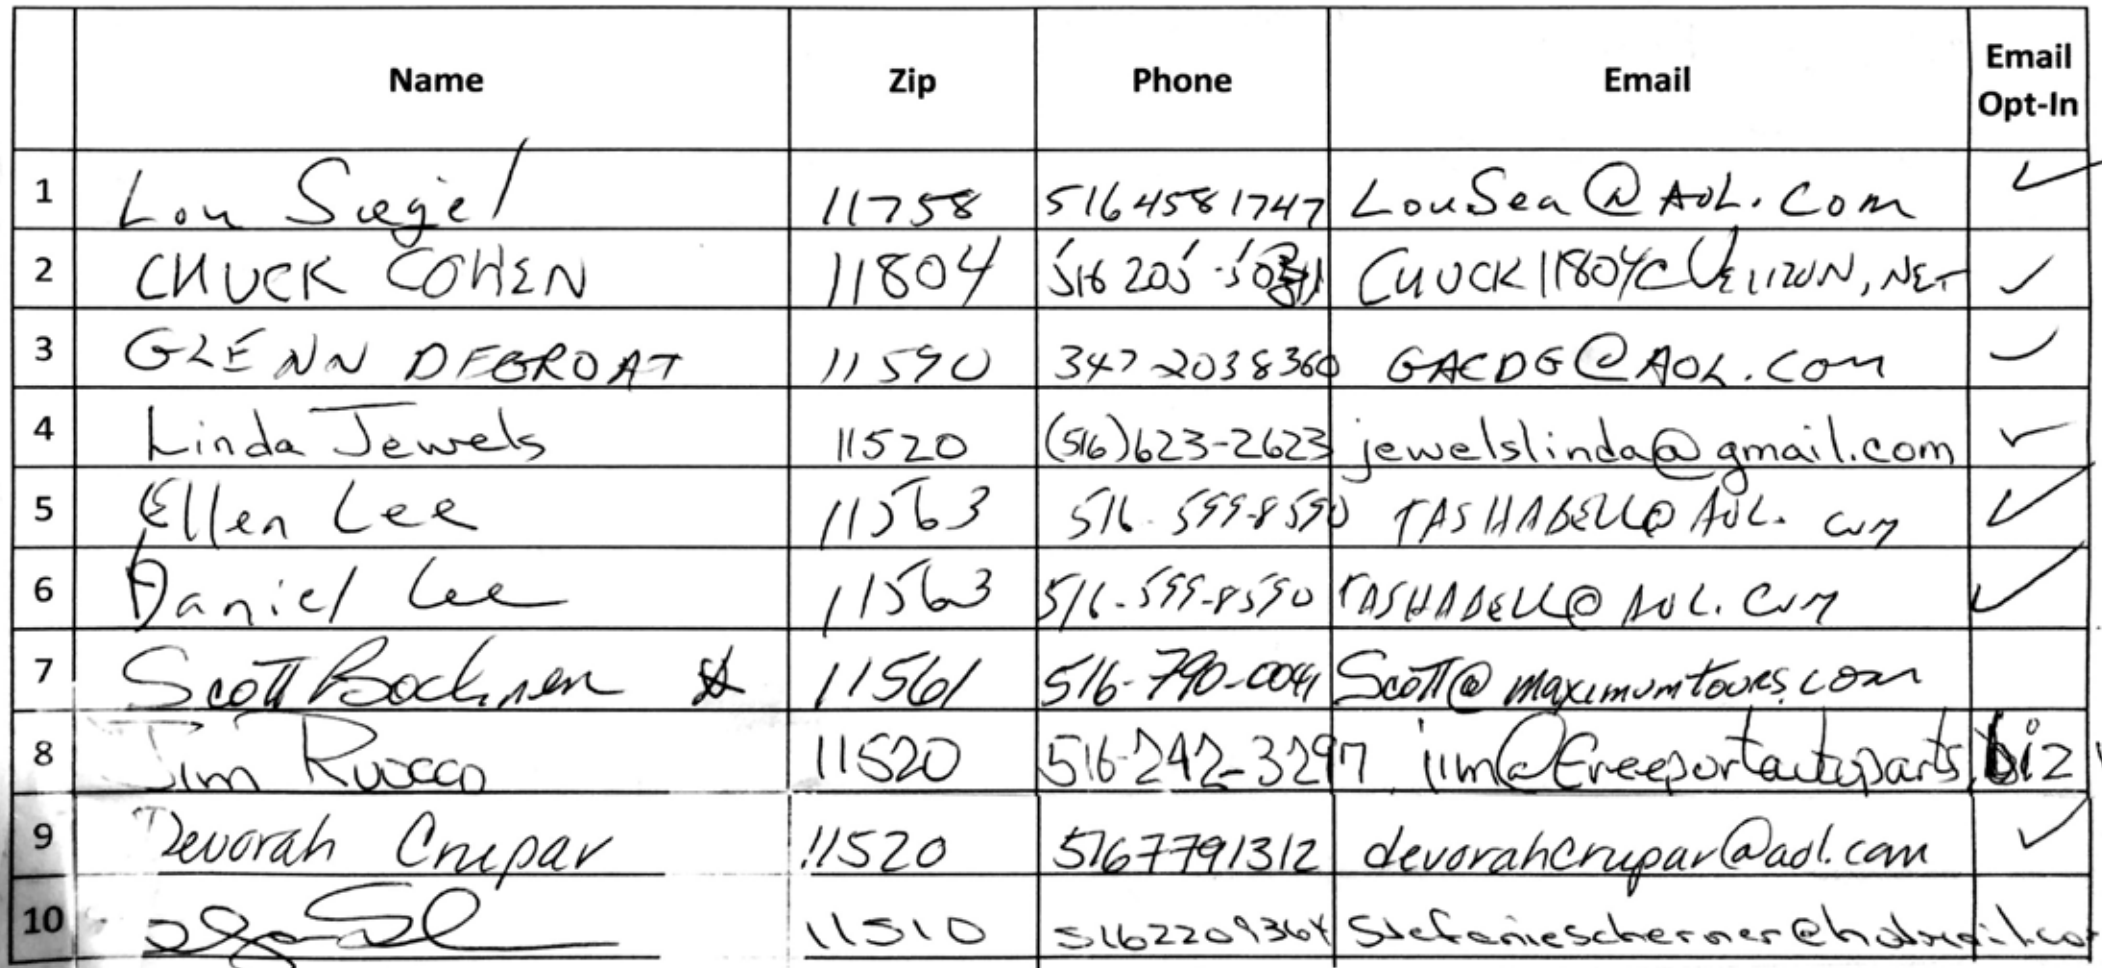 Name Zip Phone Email Email Opt-In
1 Lou Siegel 11758 5164581747 LouSea@AOL.com
2 CHUCK COHEN 11804 516 205 CHUCK11804@VERIZON.NET
3 GLENN DEGROAT 11590 347-2038360 GACDG@AOL.com
4 Linda Jewels 11520 (516)623-2623 jewelslinda@gmail.com
5 Ellen Lee 11563 516-599-8590 TASHABELL@AOL.com
6 Daniel Lee 11563 516-599-8590 TASHABELL@AOL.COM
7 Scott 11561 516-790-0041 Scott@maximumtours.com
8 Jim Ruocco 11520 516-242-3297 jim@freeportautoparts.biz
9 Devorah Crupar 11520 5167791312 devorahcrupar@aol.com
10 11510 5162209364